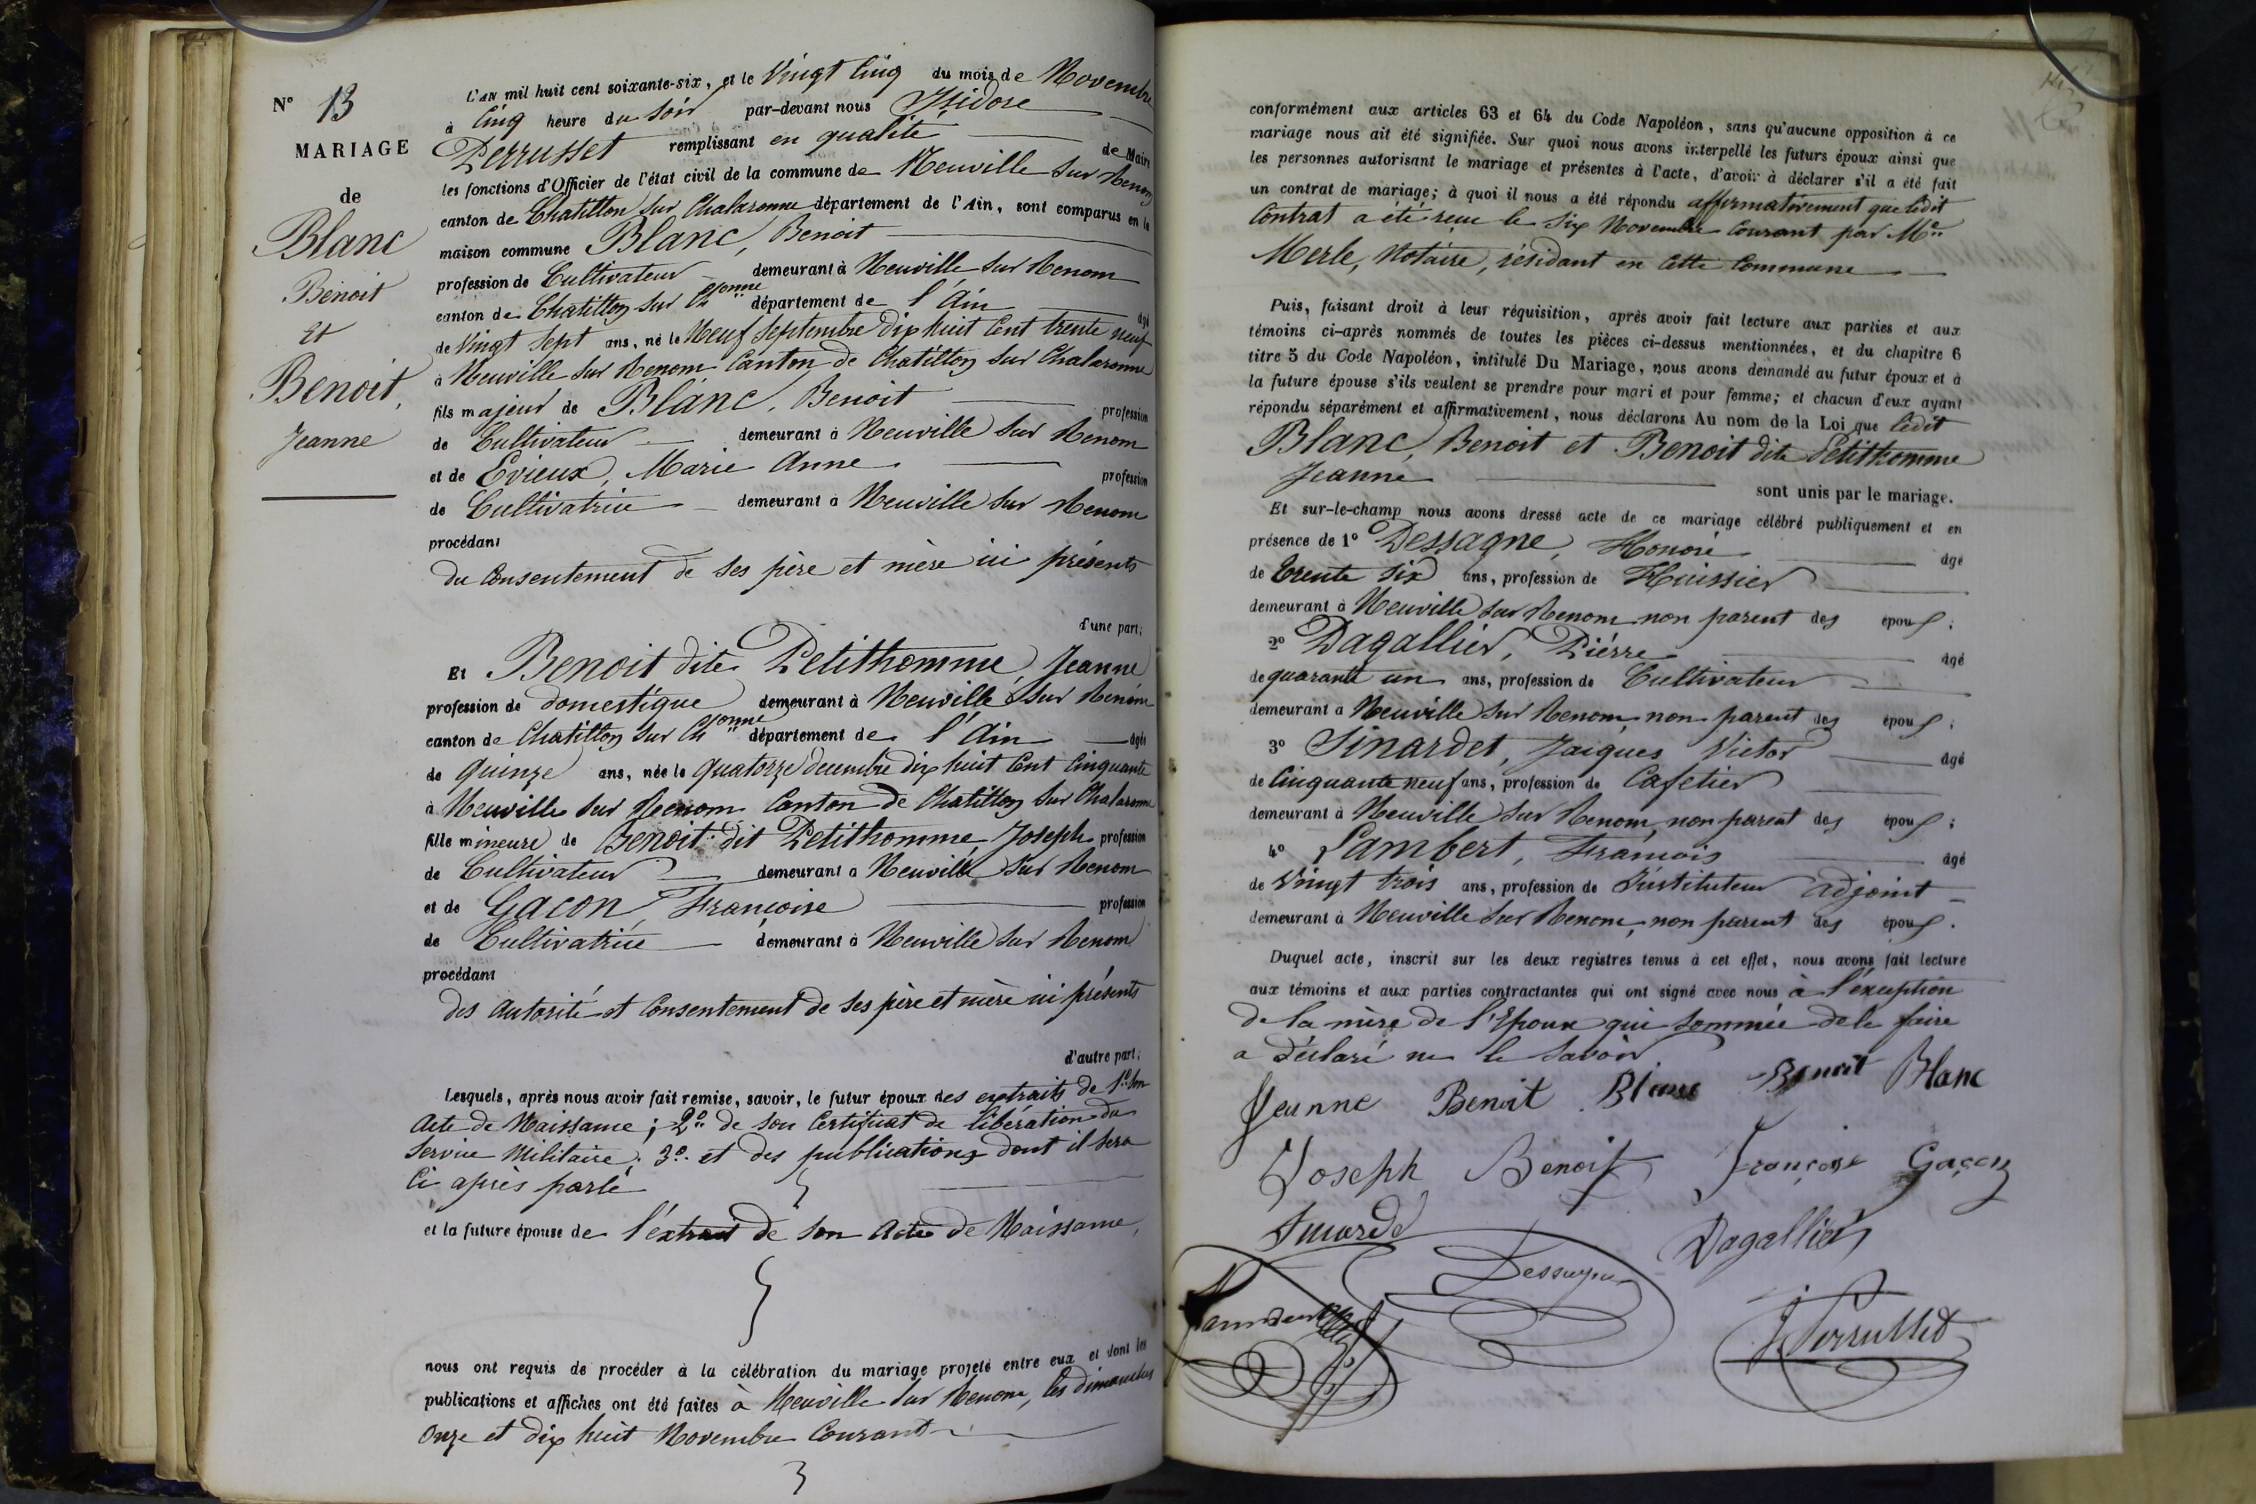 N° 13
MARIAGE
de
Blanc
Benoit
Et
Benoit,
Jeanne
L'AN mil huit cent soixante-six, et le Vingt Cinq du mois de Novembre
à Cinq heure du Soir par-devant nous Isidore
Perrusset remplissant en qualité de Maire
les fonctions d'Officier de l'état civil de la commune de Neuville sur Renom
canton de Chatillon sur Chalaronne département de l'Ain, sont comparus en la
maison commune Blanc, Benoit
profession de Cultivateur demeurant à Neuville sur Renom
canton de Chatillon sur Chonne département de l'Ain âgé
de Vingt Sept ans, né le Neuf Septembre dix huit Cent trente neuf
à Neuville sur Renom Canton de Chatillon sur Chalaronne
fils majeur de Blanc, Benoit profession
de Cultivateur demeurant à Neuville sur Renom
et de Evieux, Marie Anne profession
de Cultivatrice demeurant à Neuville sur Renom
procédant
du Consentement de ses père et mère ici présents
d'une part;
Et Benoit dite Petithomme, Jeanne
profession de domestique demeurant à Neuville sur Renom
canton de Chatillon sur Chonne département de l'Ain âgée
de quinze ans, née le quatorze decembre dix huit Cent Cinquante
à Neuville sur Renom Canton de Chatillon sur Chalaronne
fille mineure de Benoit dit Petithomme, Joseph profession
de Cultivateur demeurant à Neuville sur Renom
et de Gacon, Françoise profession
de Cultivatrice demeurant à Neuville sur Renom
procédant
des autorité et Consentement de ses père et mère ici présents
d'autre part;
Lesquels, après nous avoir fait remise, savoir, le futur époux des extraits de 1° son
Acte de Naissance; 2° de son Certificat de libération du
Service Militaire; 3° et des publications dont il sera
Ci après parlé
et la future épouse de l'extrait de son Acte de Naissance,
nous ont requis de procéder à la célébration du mariage projeté entre eux et dont les
publications et affiches ont été faites à Neuville sur Renom, les dimanches
Onze et dix huit Novembre Courant
conformément aux articles 63 et 64 du Code Napoléon, sans qu'aucune opposition à ce
mariage nous ait été signifiée. Sur quoi nous avons interpellé les futurs époux ainsi que
les personnes autorisant le mariage et présentes à l'acte, d'avoir à déclarer s'il a été fait
un contrat de mariage; à quoi il nous a été répondu affirmativement que ledit
Contrat a été reçu le Six Novembre Courant par Me
Merle, Notaire, résidant en Cette Commune
Puis, faisant droit à leur réquisition, après avoir fait lecture aux parties et aux
témoins ci-après nommés de toutes les pièces ci-dessus mentionnées, et du chapitre 6
titre 5 du Code Napoléon, intitulé Du Mariage, nous avons demandé au futur époux et à
la future épouse s'ils veulent se prendre pour mari et pour femme; et chacun d'eux ayant
répondu séparément et affirmativement, nous déclarons Au nom de la Loi que ledit
Blanc, Benoit et Benoit dite Petithomme
Jeanne sont unis par le mariage.
Et sur-le-champ nous avons dressé acte de ce mariage célébré publiquement et en
présence de 1° Dessagne, Honoré âgé
de trente Six ans, profession de Huissier
demeurant à Neuville sur Renom non parent des époux;
2° Dagallier, Pierre âgé
de quarante un ans, profession de Cultivateur
demeurant à Neuville sur Renom, non parent des époux;
3° Sinardet, Jacques Victor âgé
de Cinquante neuf ans, profession de Cafetier
demeurant à Neuville sur Renom, non parent des époux;
4° Lambert, François âgé
de Vingt trois ans, profession de Instituteur adjoint
demeurant à Neuville sur Renom, non parent des époux.
Duquel acte, inscrit sur les deux registres tenus à cet effet, nous avons fait lecture
aux témoins et aux parties contractantes qui ont signé avec nous à l'exception
de la mère de l'Epoux qui sommée de le faire
a déclaré ne le savoir
Jeanne Benoit Blanc Benoit Blanc
Joseph Benoit Françoise Gaçon
Sinardet Dagallier
Dessagne
J Perrusset